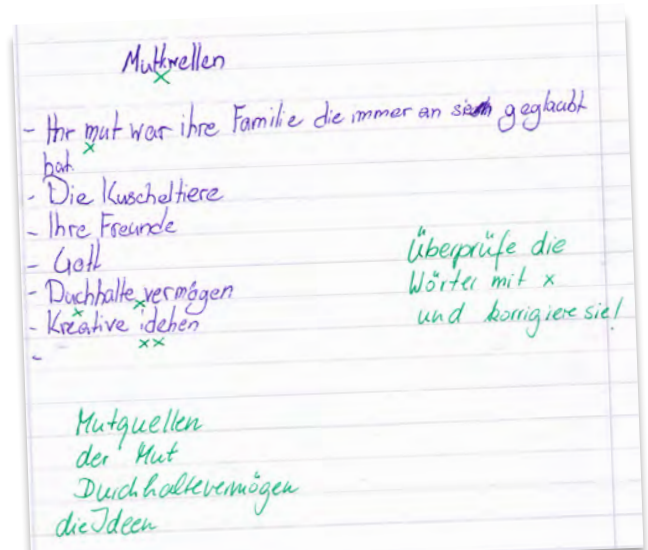 Mutkwellen
x
- Ihr mut war ihre Familie die immer an sie geglaubt
x
hat
- Die Kuscheltiere
- Ihre Freunde
- Gott
- Duchhalte vermögen
x x
- Kreative idehen
xx
-
Überprüfe die
Wörter mit x
und korrigiere sie!
Mutquellen
der Mut
Durchhaltevermögen
die Ideen